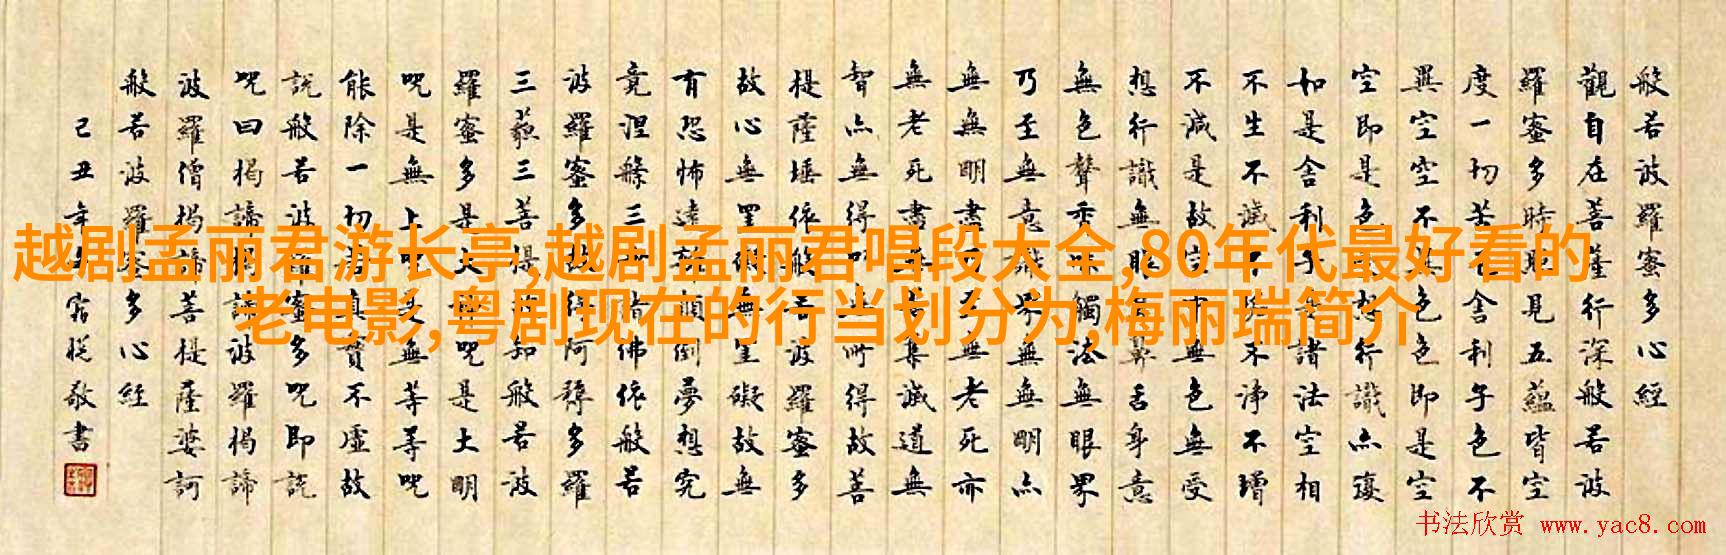 般若波羅蜜多心經
觀自在菩薩行深般若波
羅蜜多時照見五蘊皆空
度一切苦厄舍利子色不
異空空不異色色即是空
空即是色受想行識亦復
如是舍利子是諸法空相
不生不滅不垢不淨不增
不減是故空中無色無受
想行識無眼耳鼻舌身意
無色聲香味觸法無眼界
乃至無意識界無無明亦
無無明盡乃至無老死亦
無老死盡無苦集滅道無
智亦無得以無所得故菩
提薩埵依般若波羅蜜多
故心無罣礙無罣礙故無
有恐怖遠離顛倒夢想究
竟涅槃三世諸佛依般若
波羅蜜多故得阿耨多羅
三藐三菩提故知般若波
羅蜜多是大神呪是大明
呪是無上呪是無等等呪
能除一切苦真實不虛故
說般若波羅蜜多呪即說
呪曰揭諦揭諦波羅揭諦
波羅僧揭諦菩提薩婆訶
般若波羅蜜多心經
己丑年敬書
越剧孟丽君游长亭,越剧孟丽君唱段大全,80年代最好看的
老电影,粤剧现在的行当划分为,梅丽瑞简介
书法欣赏 www.yac8.com